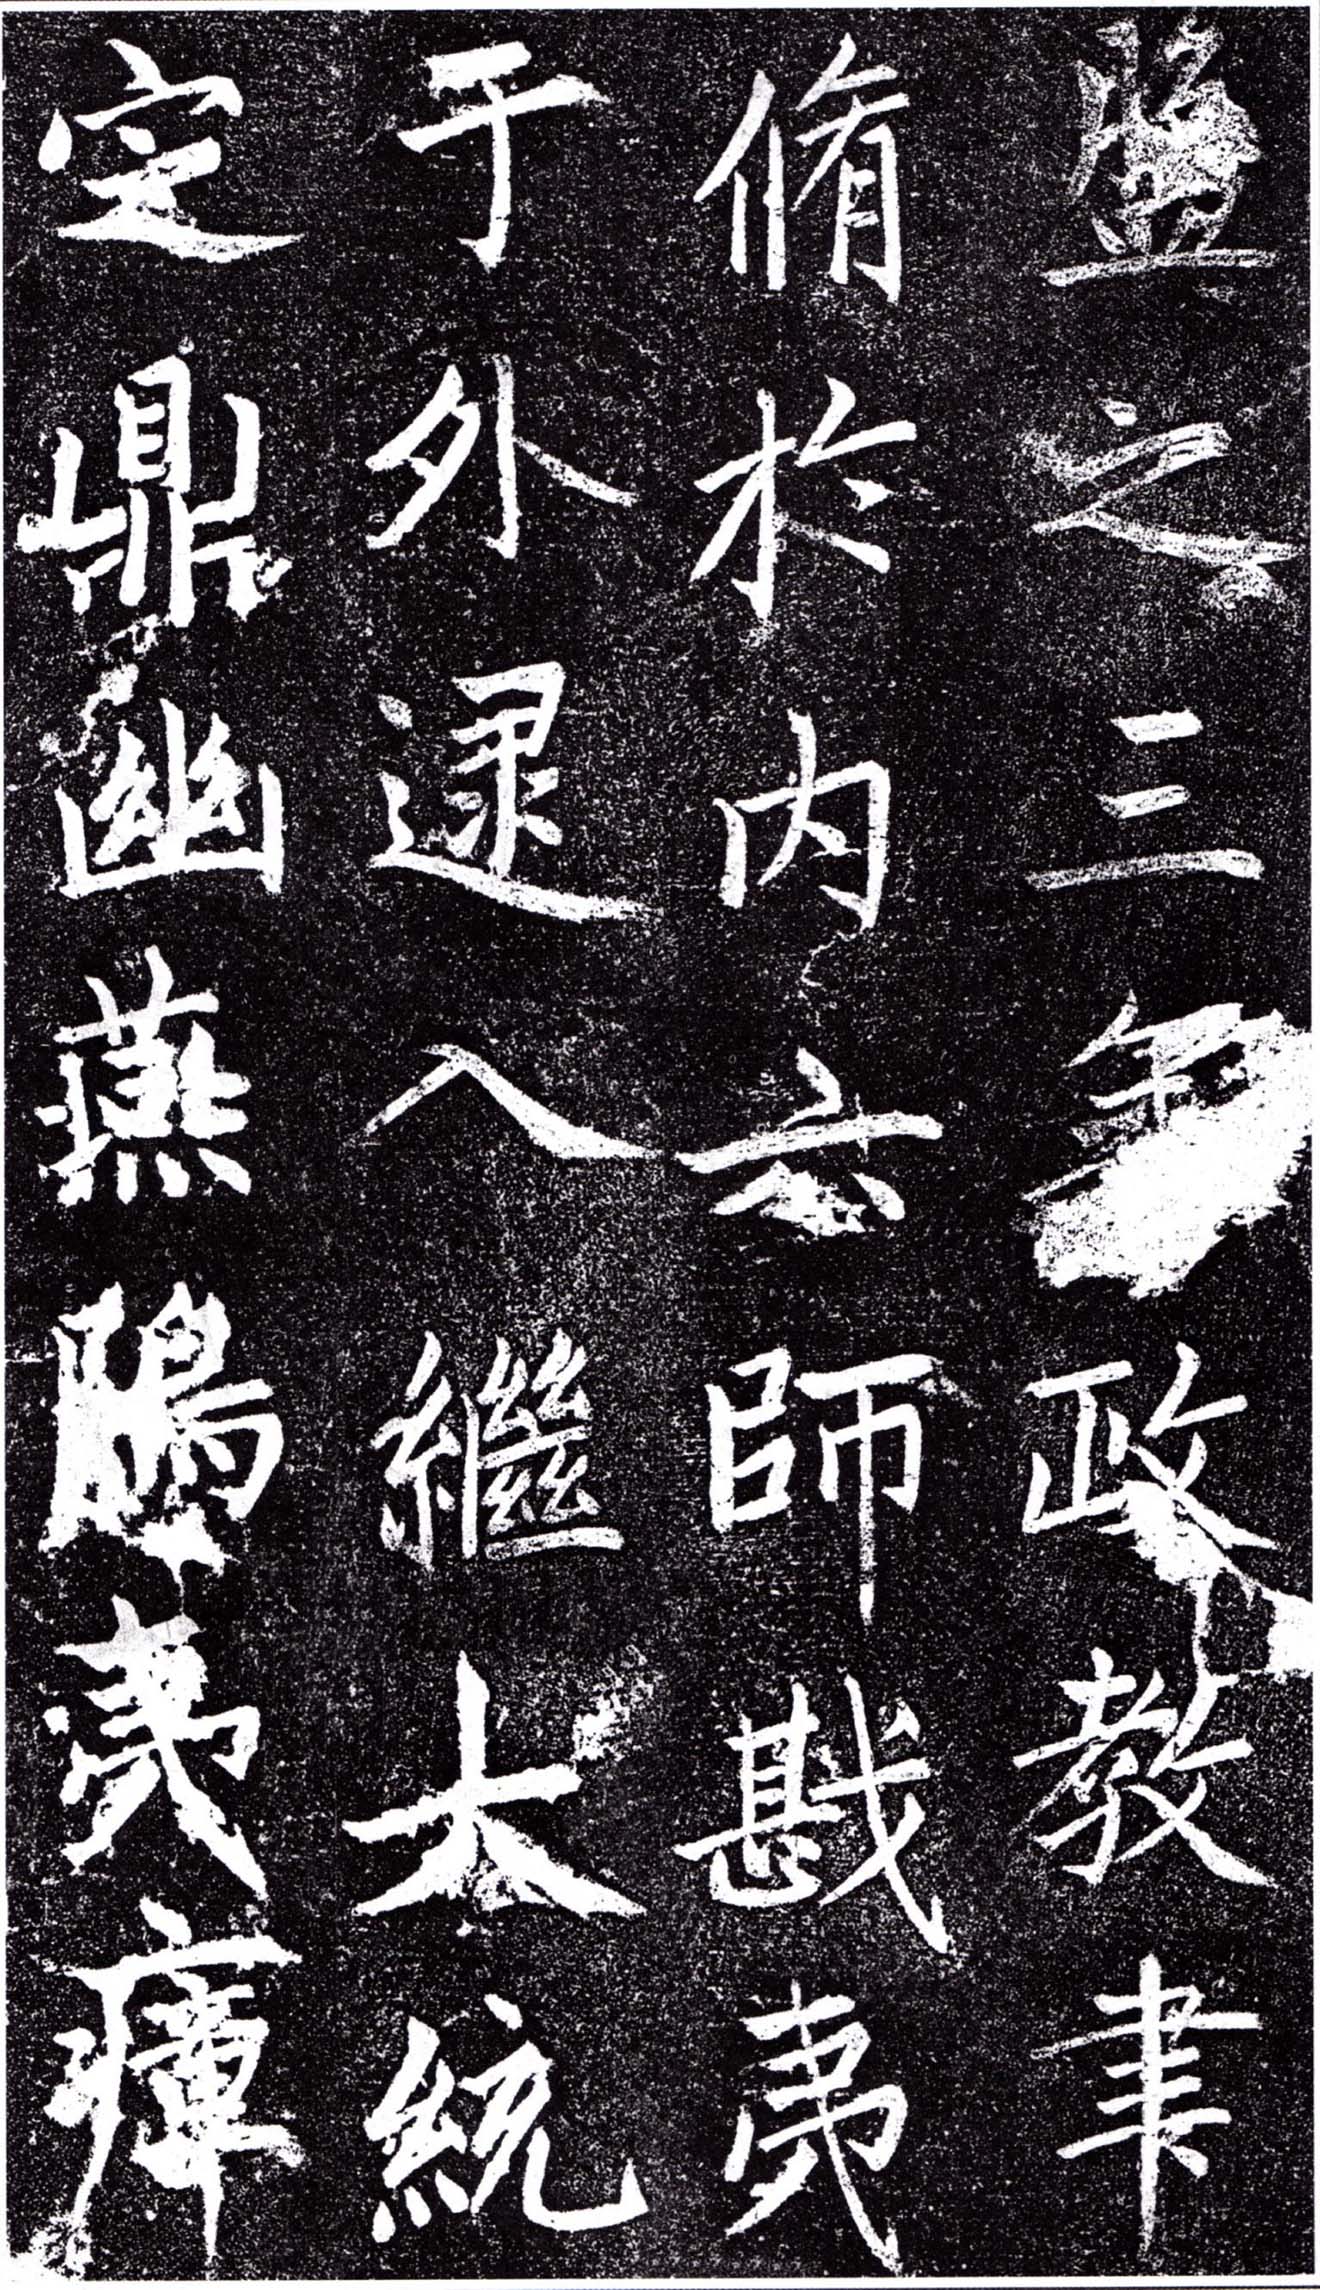 之三年政教聿
脩於内六師戡夷
于外逮入繼大統
定鼎幽燕夷瘴